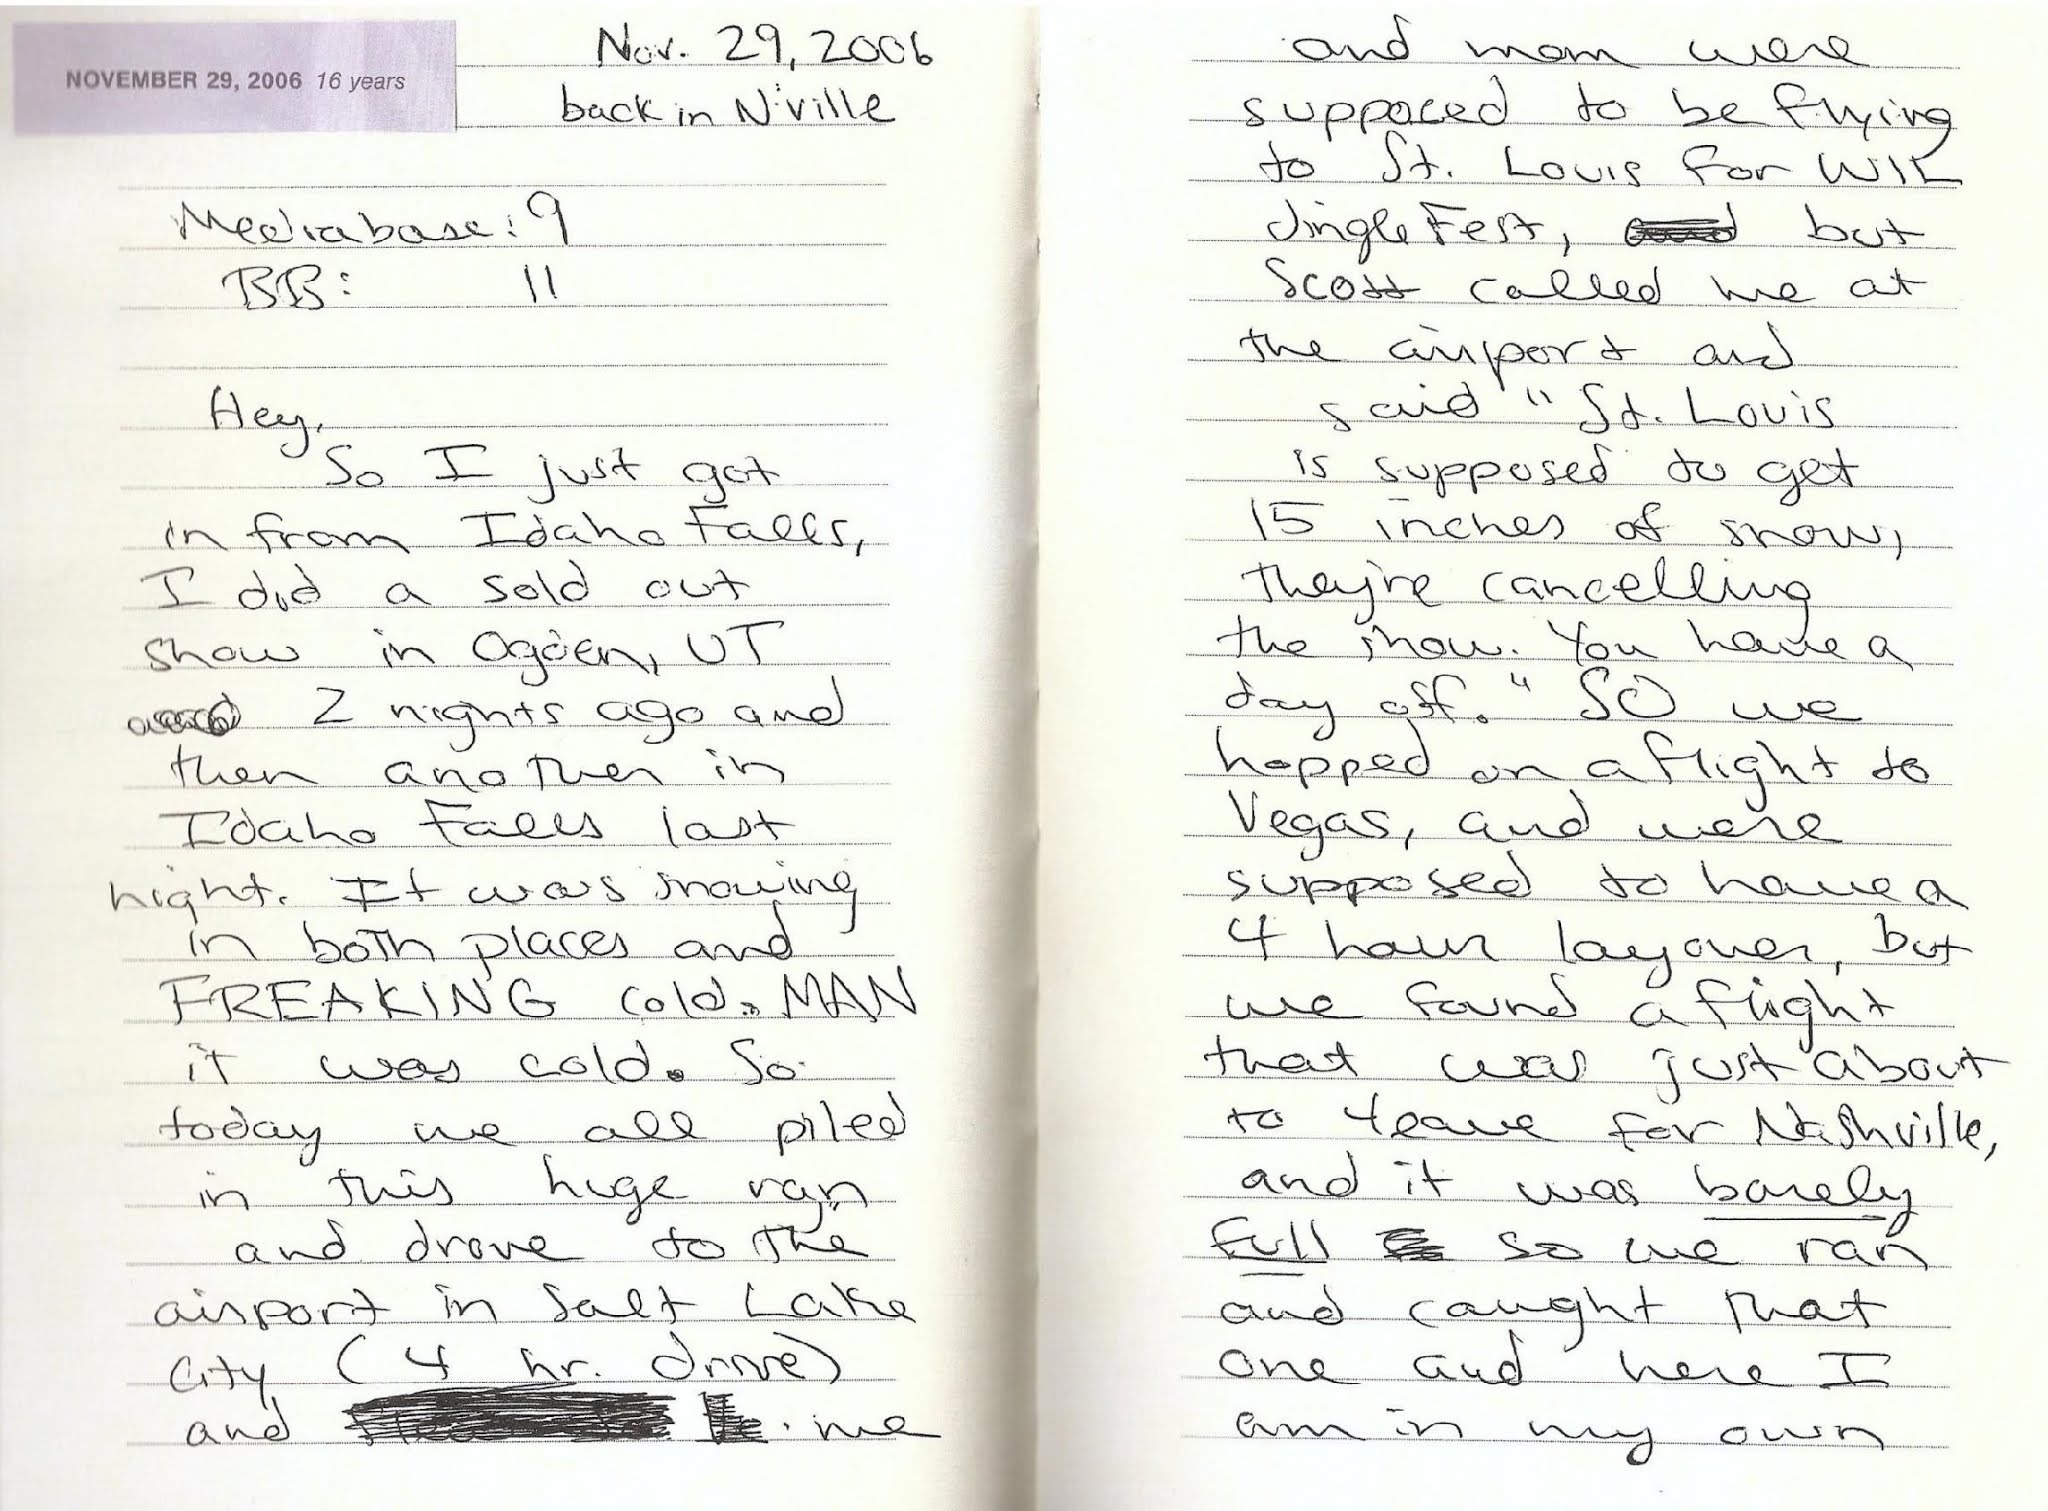 NOVEMBER 29, 2006 16 years
Nov. 29, 2006
back in N'ville
Mediabase: 9
BB: 11
Hey,
So I just got
in from Idaho Falls,
I did a sold out
show in Ogden, UT
2 nights ago and
then another in
Idaho Falls last
night. It was snowing
in both places and
FREAKING cold. MAN
it was cold. So
today we all piled
in this huge van
and drove to the
airport in Salt Lake
City (4 hr. drive)
and me
and mom were
supposed to be flying
to St. Louis for WIL
Jingle Fest, but
Scott called me at
the airport and
said "St. Louis
is supposed to get
15 inches of snow,
they're cancelling
the show. You have a
day off." SO we
hopped on a flight to
Vegas, and were
supposed to have a
4 hour layover, but
we found a flight
that was just about
to leave for Nashville,
and it was barely
full so we ran
and caught that
one and here I
am in my own